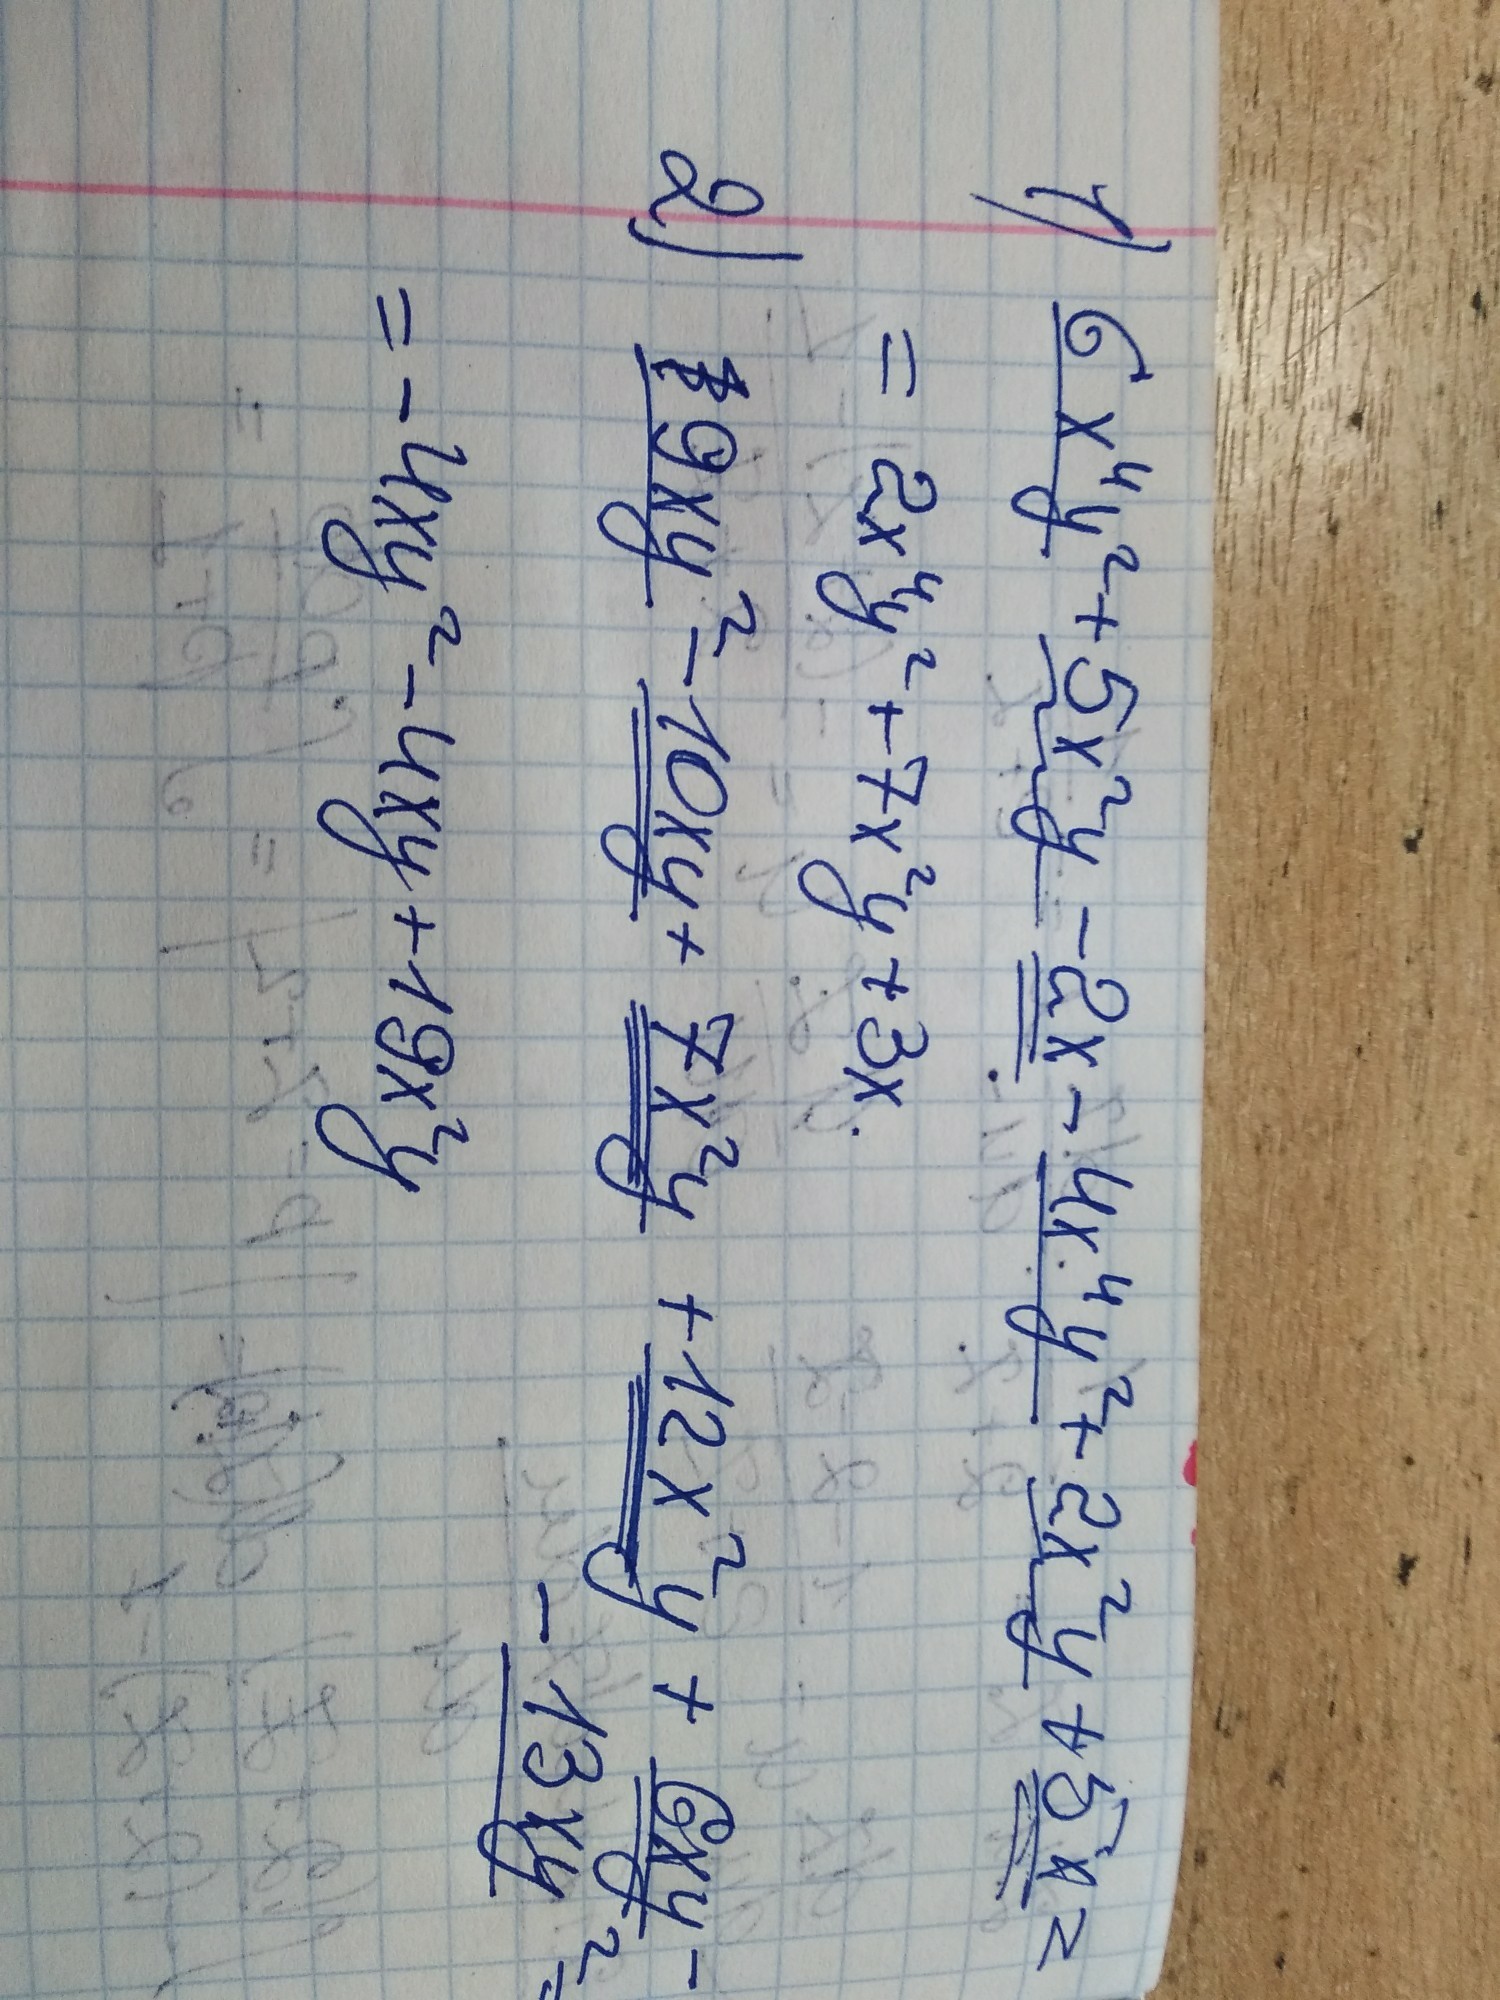 1) 6x⁴y² + 5x²y - 2x - 4x⁴y² + 2x²y + 5x =
= 2x⁴y² + 7x²y + 3x.
2) 9xy² - 10xy + 7x²y + 12x²y + 6xy -
- 13xy² =
= - 4xy² - 4xy + 19x²y